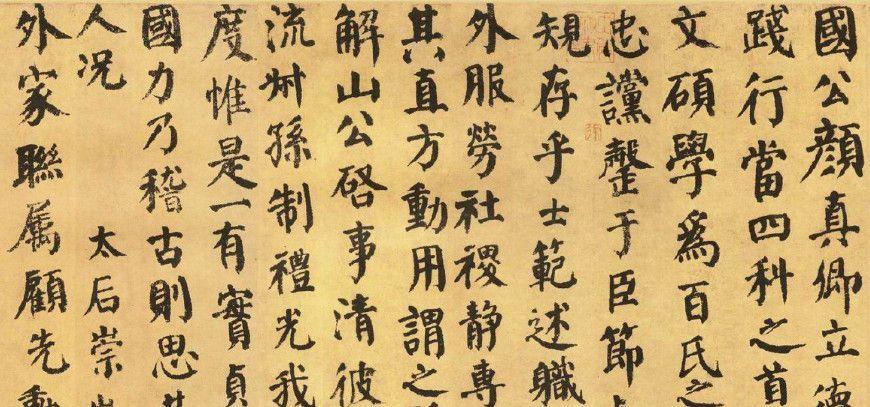 國公顔真卿立德
踐行當四科之首
文碩學爲百氏之
忠讜罄于臣節
規存乎士範述職
外服勞社稷静專
其直方動用謂之
解山公啓事清彼
流叔孫制禮光我
度惟是一有實貞
國力乃稽古則思
人况 太后崇
外家聯属顧先